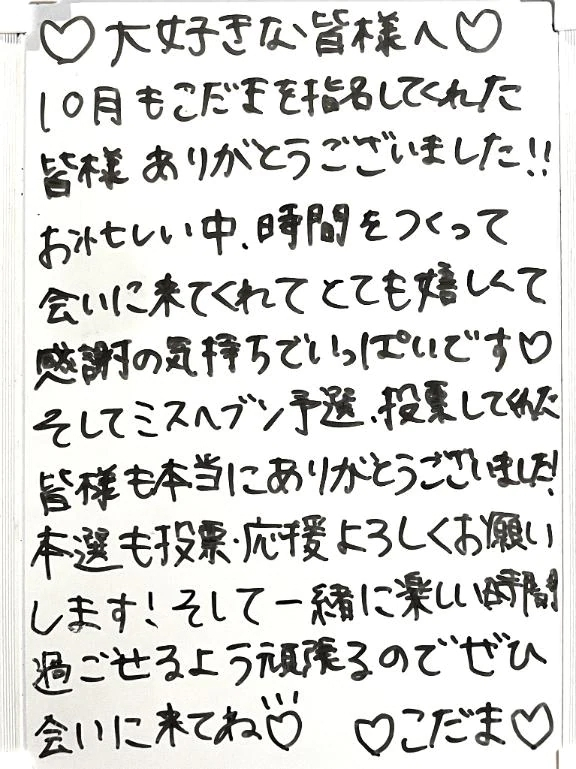 ♡大好きな皆様へ♡
10月もこだまを指名してくれた
皆様ありがとうございました!!
お忙しい中、時間をつくって
会いに来てくれてとても嬉しくて
感謝の気持ちでいっぱいです♡
そしてミスヘブン予選、投票してくれた
皆様も本当にありがとうございました!
本選も投票・応援よろしくお願い
します!そして一緒に楽しい時間
過ごせるよう頑張るのでぜひ
会いに来てね♡ ♡こだま♡